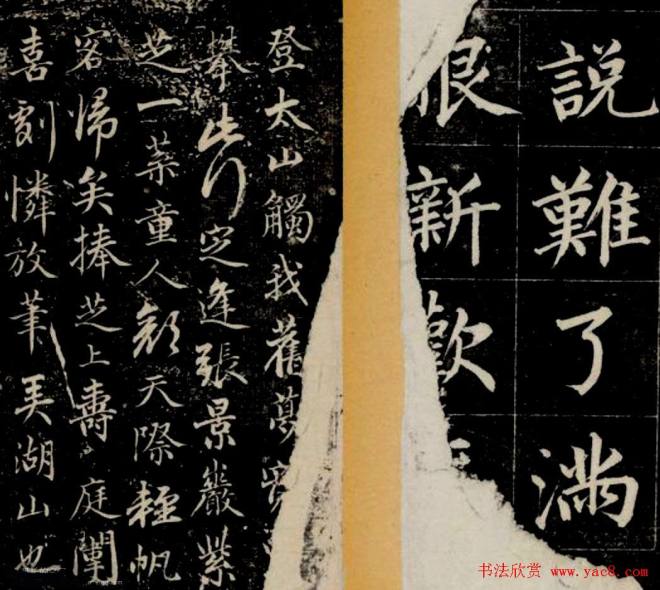 說難了滿
恨新歡
登太山觸我舊夢
攀此行定逢張景巖紫
芝一葉童人顏天際輕帆
容歸矣捧芝上壽庭闈
喜劇憐放筆美湖山也
书法欣赏 www.yac8.com